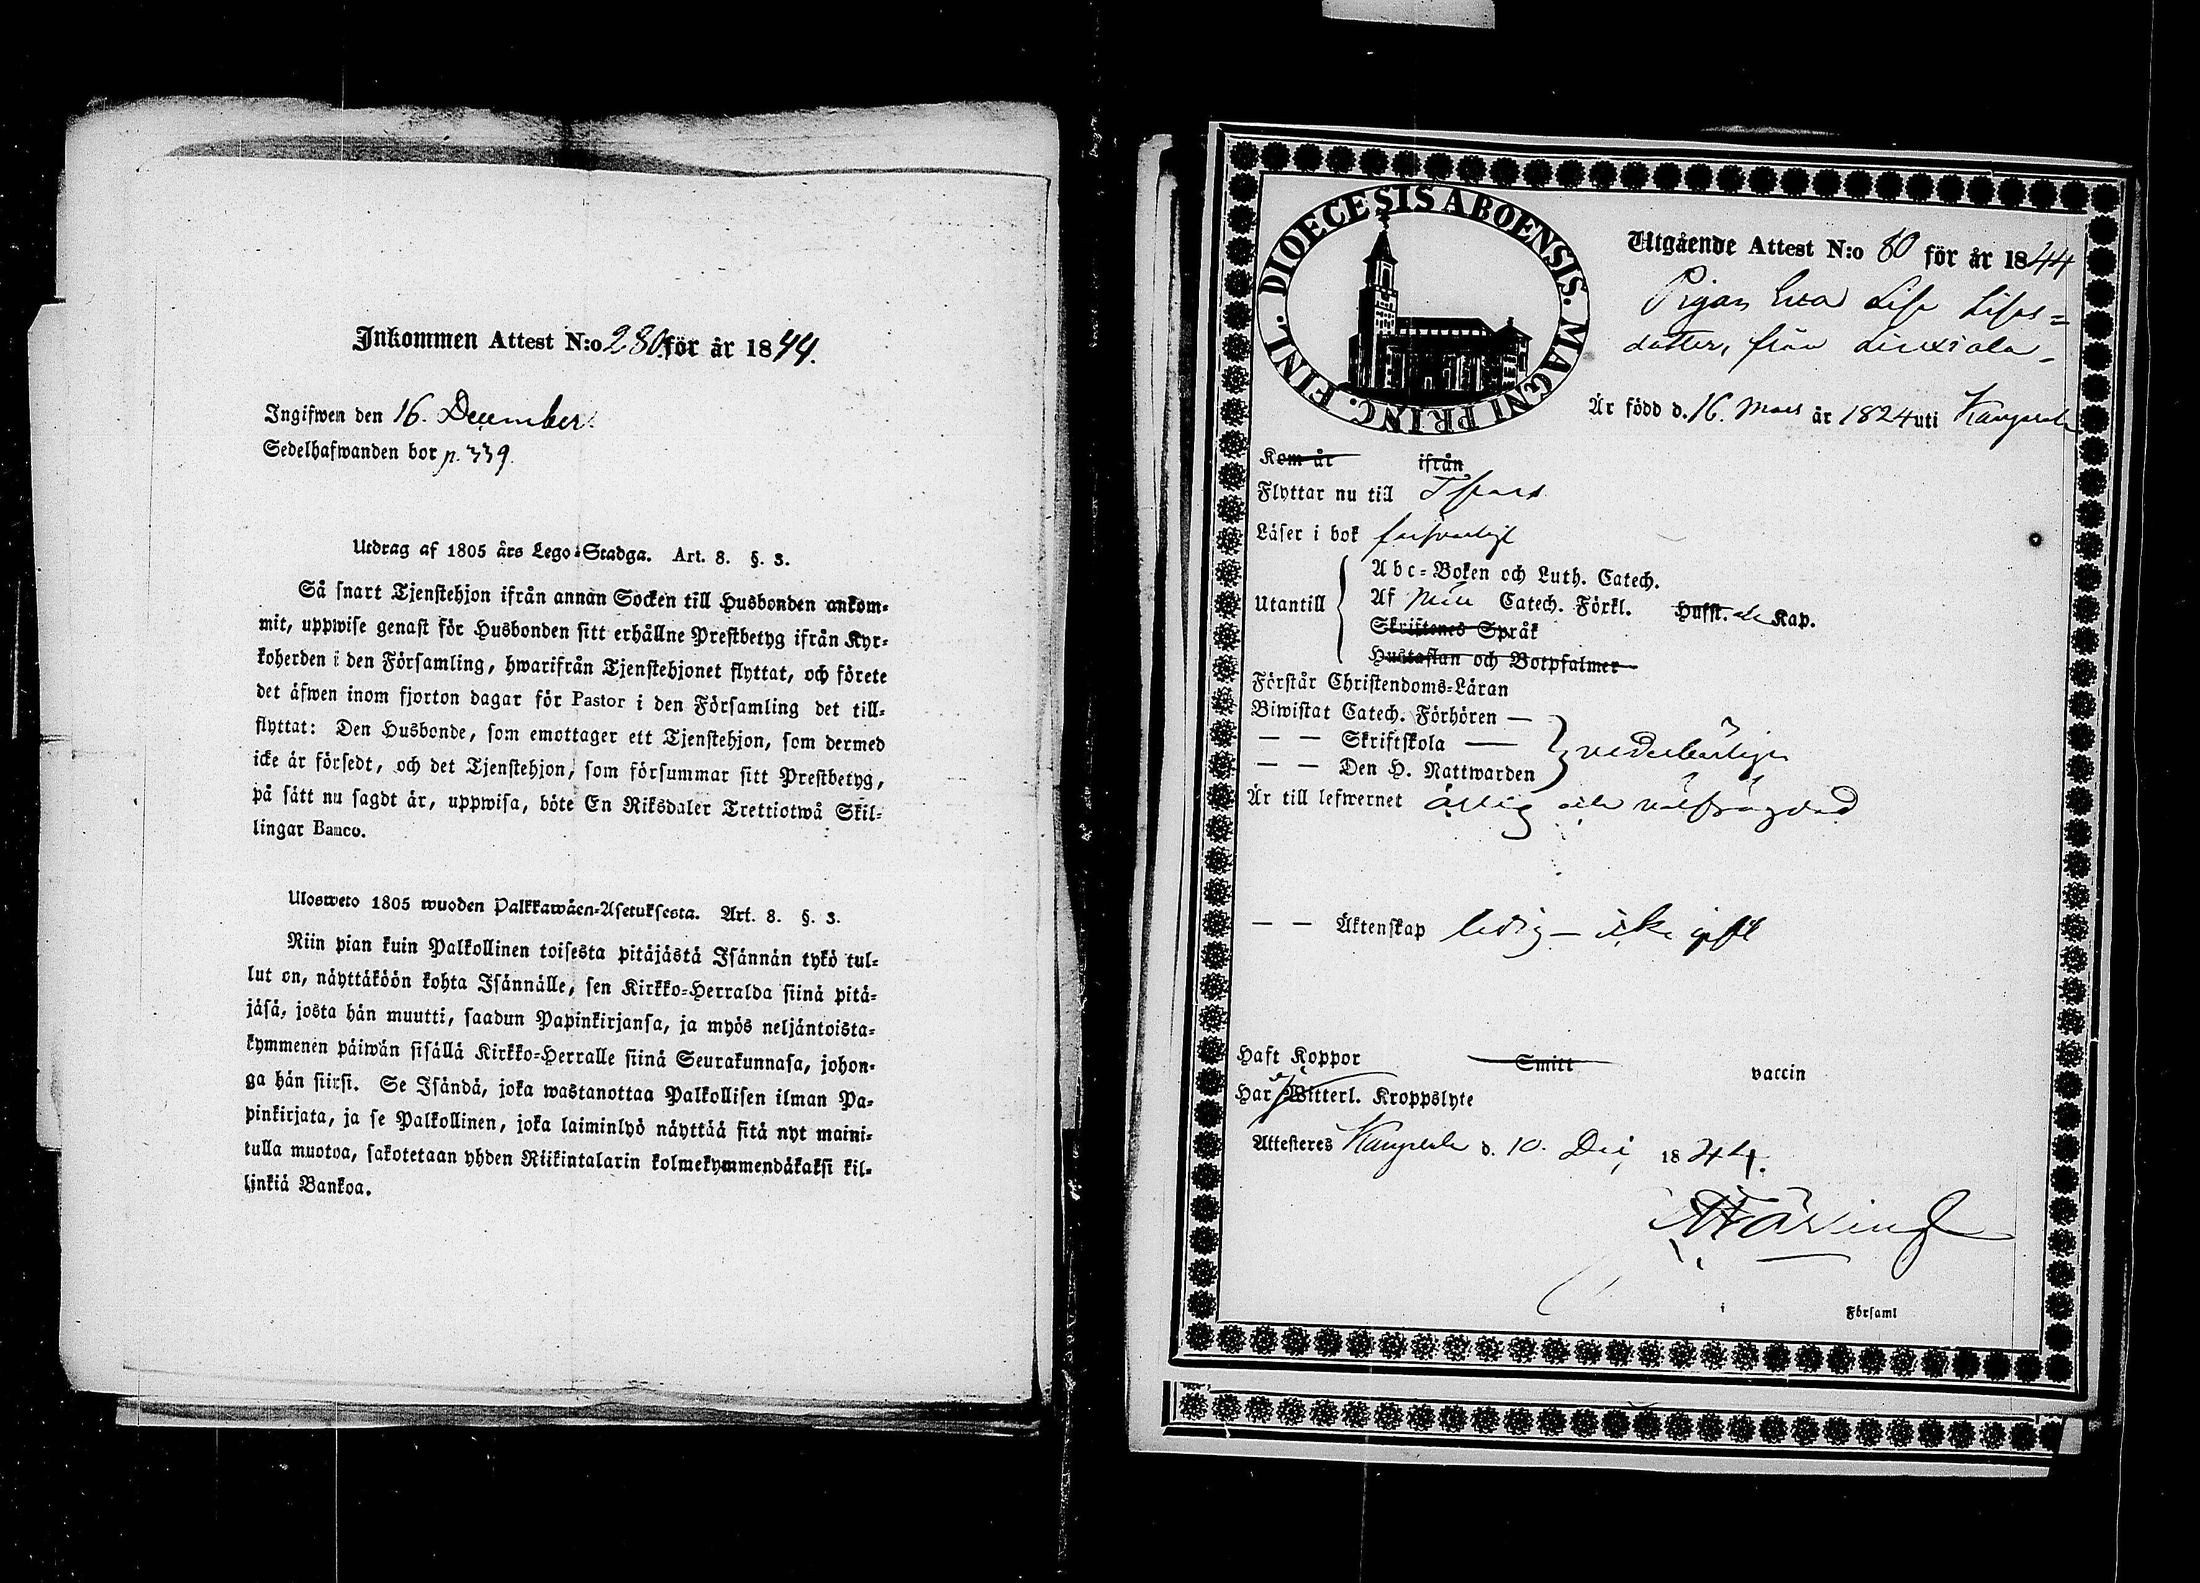 Inkommen Attest N:o 280 för år 1844.
Ingifwen den 16. December.
Sedelhafwanden bor p. 339.
Utdrag af 1805 års Lego-Stadga. Art. 8. §. 3.
Så snart Tjenstehjon ifrån annan Socken till Husbonden ankom-
mit, uppwise genast för Husbonden sitt erhållne Prestbetyg ifrån Kyr-
koherden i den Församling, hwarifrån Tjenstehjonet flyttat, och förete
det äfwen inom fjorton dagar för Pastor i den Församling det till-
flyttat: Den Husbonde, som emottager ett Tjenstehjon, som dermed
icke är försedt, och det Tjenstehjon, som försummar sitt Prestbetyg,
på sätt nu sagdt är, uppwisa, böte En Riksdaler Trettiotwå Skil-
lingar Banco.
Ulosweto 1805 wuoden Palkkawäen-Asetuksesta. Art. 8. §. 3.
Niin pian kuin Palkollinen toisesta pitäjästä Isännän tykö tul-
lut on, näyttäköön kohta Isännälle, sen Kirkko-Herralda siinä pitä-
jäsä, josta hän muutti, saadun Papinkirjansa, ja myös neljäntoista-
kymmenen päiwän sisällä Kirkko-Herralle siinä Seurakunnasa, johon-
ga hän siirsi. Se Isändä, joka wastanottaa Palkollisen ilman Pa-
pinkirjata, ja se Palkollinen, joka laiminlyö näyttää sitä nyt maini-
tulla muotoa, sakotetaan yhden Riikintalarin kolmekymmendäkaksi kil-
linkiä Bankoa.
DIOECESIS ABOENSIS. MAGNI PRINC. FINL.
Utgående Attest N:o 80 för år 1844
Pigan Eva Lisa Lisas=
dotter, från Liuxiala
Är född d. 16. Mars år 1824 uti Kangasala
Kom år ifrån
Flyttar nu till
Läser i bok försvarligt
Utantill
Abc-Boken och Luth. Catech.
Af Catech. Förkl. Husst. Kap.
Skriftenes Språk
Hustaflan och Botpsalmer
Förstår Christendoms-Läran
Biwistat Catech. Förhören —
— — Skriftskola —
— — Den H. Nattwarden
vederbörligen
Är till lefwernet ärlig och välfrägdad
— — Äktenskap ledig — icke gift
Haft Koppor Smitt vaccin
Har Witterl. Kroppslyte
Attesteres Kangasala d. 10. Dec. 1844.
Församl